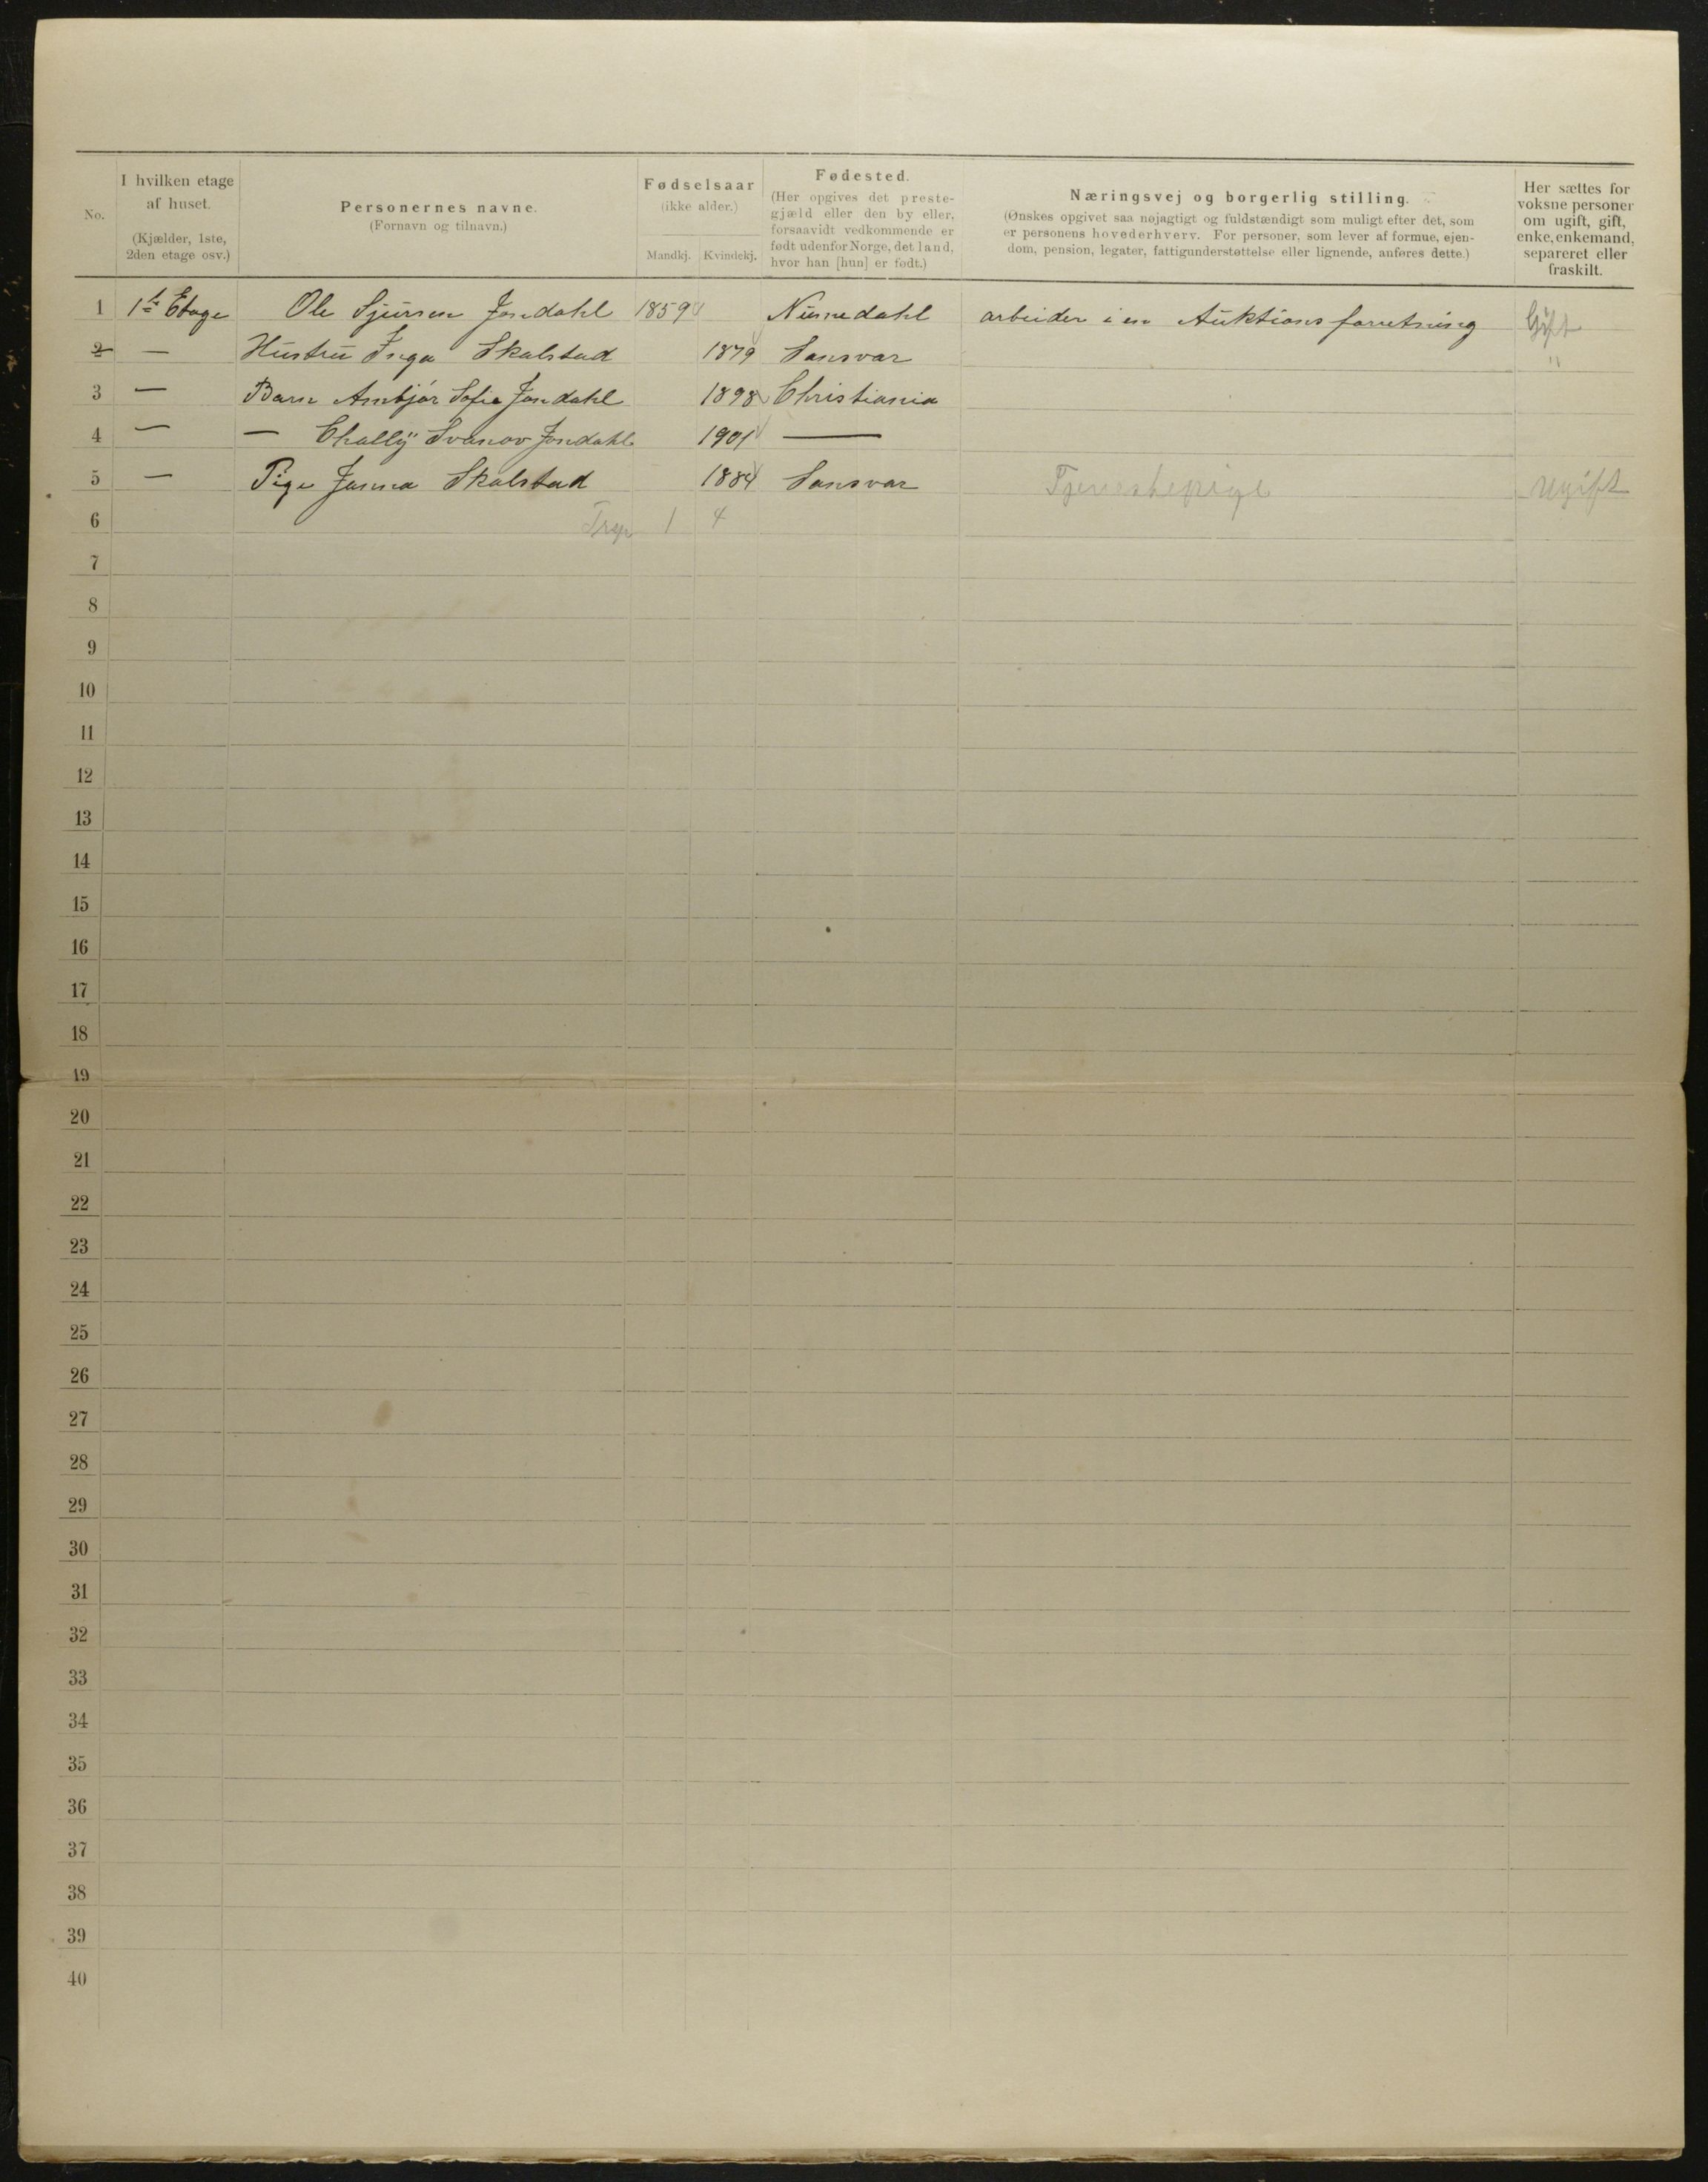 No.
I hvilken etage af huset.
(Kjælder, 1ste, 2den etage osv.)
Personernes navne.
(Fornavn og tilnavn.)
Fødselsaar
(ikke alder.)
Mandkj. Kvindekj.
Fødested.
(Her opgives det preste-
gjæld eller den by eller,
forsaavidt vedkommende er
født udenfor Norge, det land,
hvor han [hun] er født.)
Næringsvej og borgerlig stilling.
(Ønskes opgivet saa nøjagtigt og fuldstændigt som muligt efter det, som
er personens hovederhverv. For personer, som lever af formue, ejen-
dom, pension, legater, fattigunderstøttelse eller lignende, anføres dette.)
Her sættes for
voksne personer
om ugift, gift,
enke, enkemand,
separeret eller
fraskilt.
1 1ste Etage Ole Sjursen Jondahl 1859 Numedahl arbeider i en Auktionsforretning Gift
2 — Hustru Inga Skalstad 1879 Sansvar "
3 — Barn Ambjör Sofie Jondahl 1898 Christiania
4 — — Chally Svanov Jondahl 1901 —
5 — Pige Janna Skalstad 1884 Sansvar Tjenestepige Ugift
6 1 4
7
8
9
10
11
12
13
14
15
16
17
18
19
20
21
22
23
24
25
26
27
28
29
30
31
32
33
34
35
36
37
38
39
40